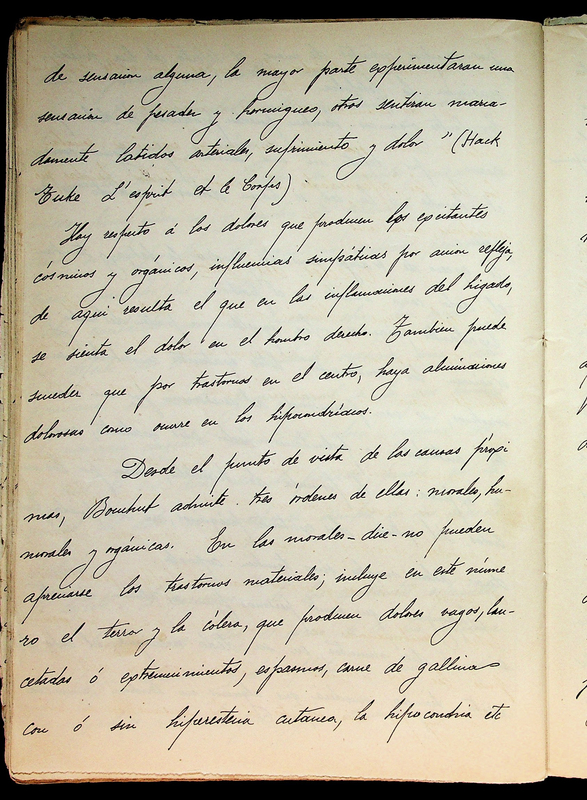 de sensacion alguna, la mayor parte experimentaran una
sensación de pesadez y hormigueo, otros sentiran marca-
damente latidos arteriales, sufrimiento y dolor" (Hack
Tuke L'esprit et le Corps)
Hay respecto á los dolores que producen los excitantes
cósmicos y orgánicos, influencias simpáticas por acion refleja,
de aqui resulta el que en las inflamaciones del higado,
se sienta el dolor en el hombro derecho. Tambien puede
suceder que por trastornos en el centro, haya alucinaciones
dolorosas como ocurre en los hipocondríacos.
Desde el punto de vista de las causas próxi
mas, Bouchut admite tres órdenes de ellas: morales, hu-
morales y orgánicas. En las morales - dice - no pueden
apreciarse los trastornos materiales; incluye en este núme
ro el terror y la cólera, que producen dolores vagos, lan-
cetadas ó extremecimientos, espasmos, carne de gallina
con ó sin hiperestesia cutanea, la hipocondria etc